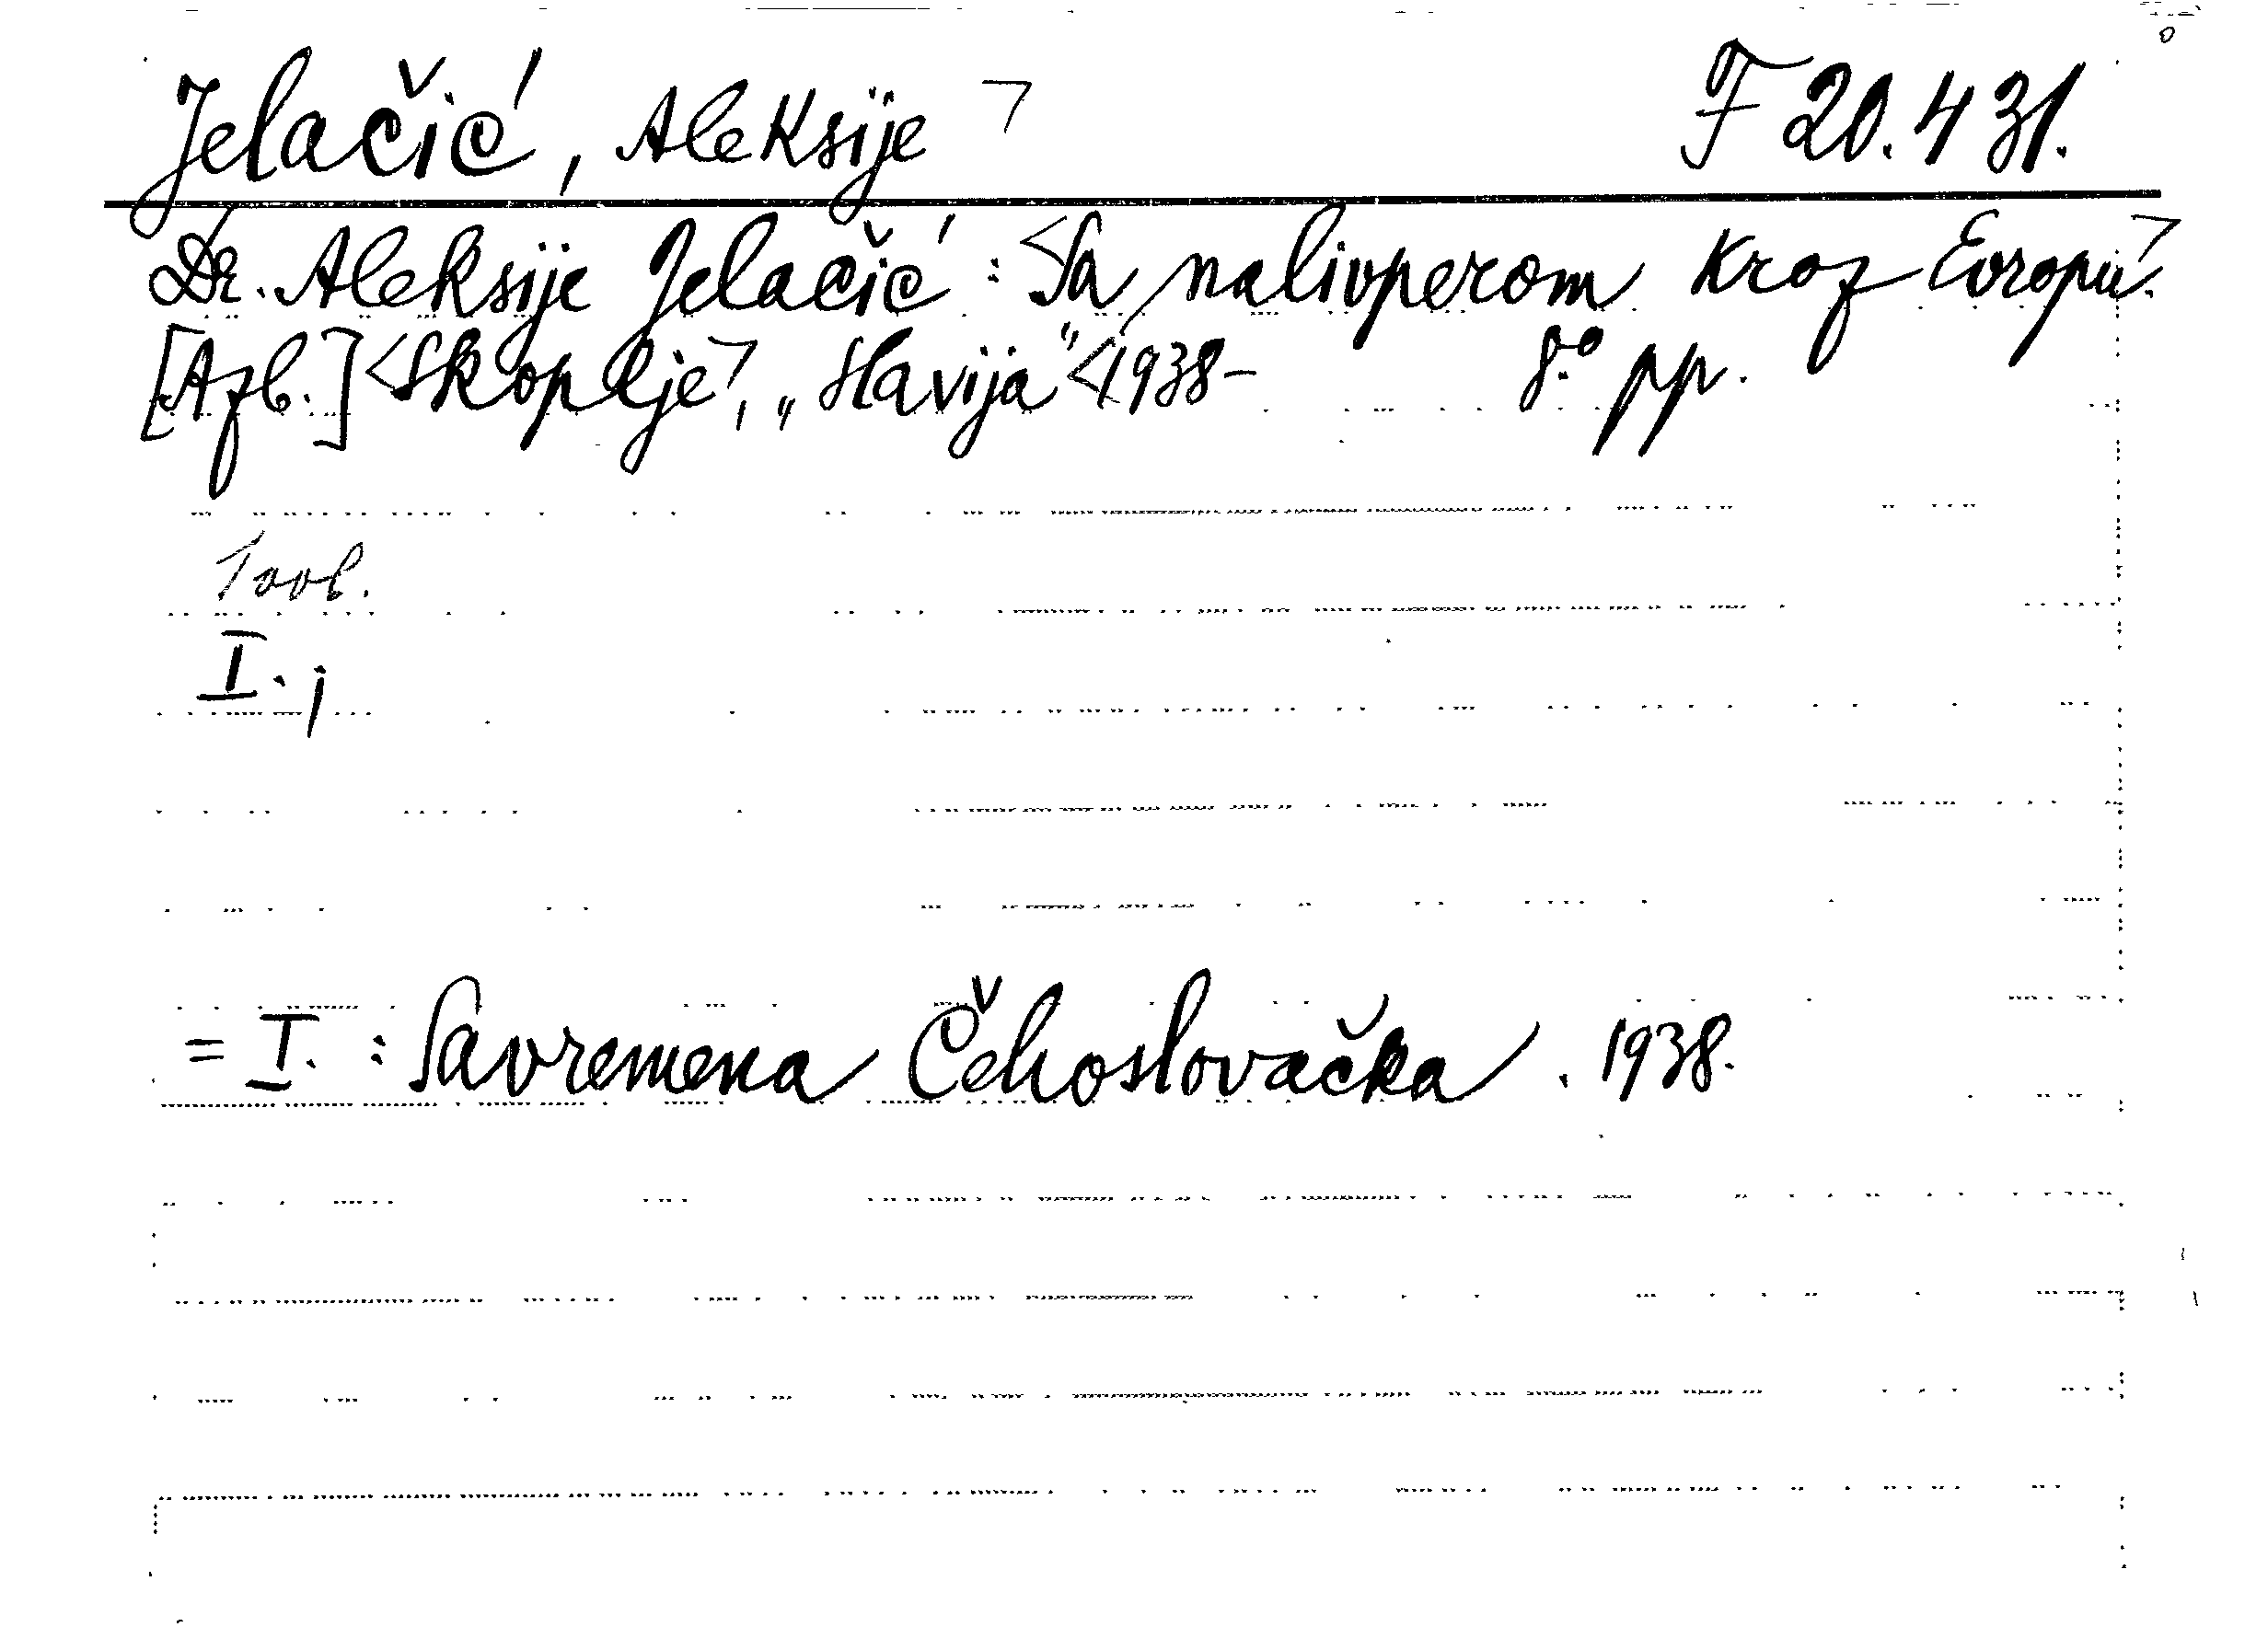 Jelačić, Aleksije ⟩ F 20.431.
Dr. Aleksije Jelačić: <Sa nalivperom kroz Evropu>.
[Azb.] <Skoplje>, „Slavija" <1938- 8.° pp.
I. ;
= I. : Savremena Čehoslovačka. 1938.